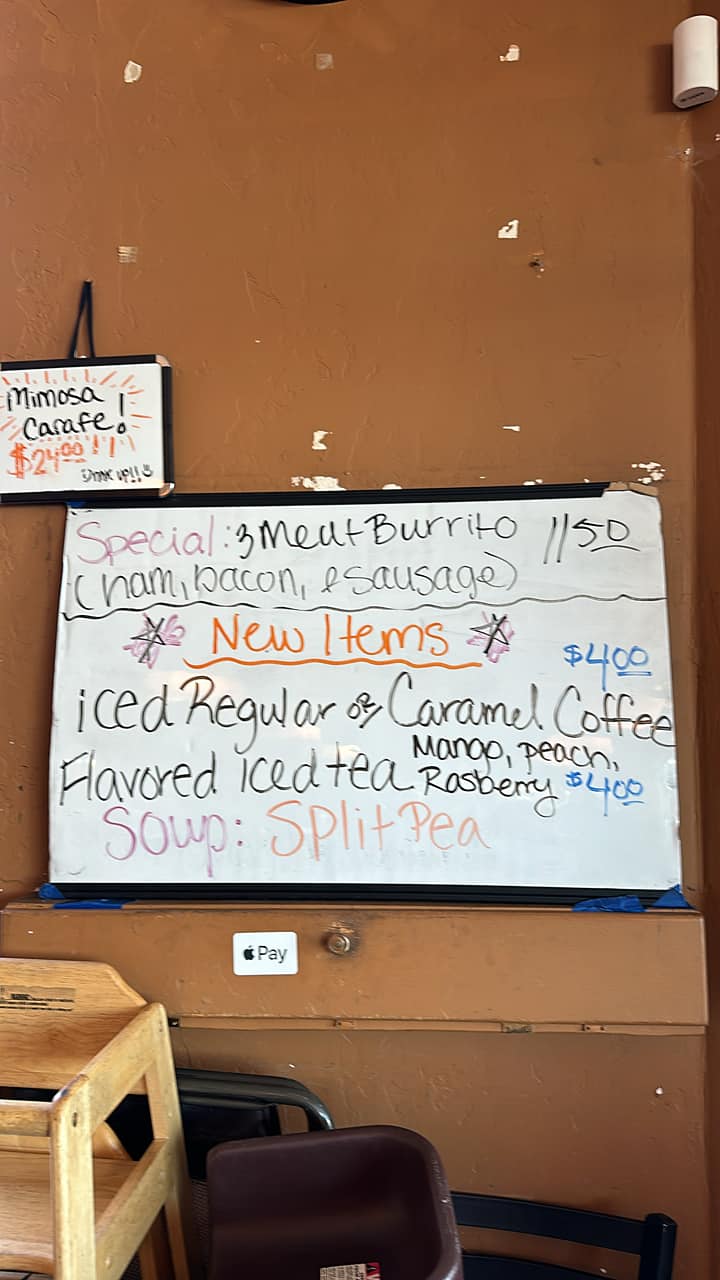 Mimosa
Carafe!
$24.00 !!
Drink up!!
Special: 3 Meat Burrito 11.50
(ham, bacon, & sausage)
New Items
$4.00
iced Regular or Caramel Coffee
Flavored iced tea Mango, peach,
Rasberry $4.00
Soup: Split Pea
Pay
WARNING